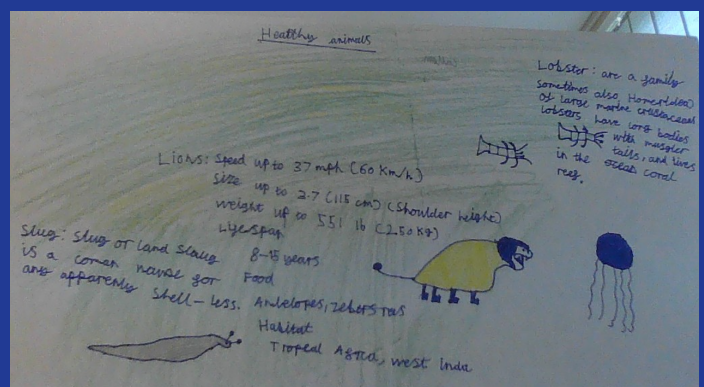 Healthy animals
Lobster: are a family
sometimes also Homeridea)
of large marine crustaceans
lobsters have long bodies
with muscler
tails, and lives
in the ocean coral
reef.
Lions: Speed up to 37 mph (60 Km/h)
Size up to 3.7 (115 cm) (Shoulder height)
weight up to 551 lb (250 Kg)
Life span
8-15 years
Food
Antelopes, zebers
Habitat
Tropeal Africa, west India
Slug: Slug or land Slaug
is a coman name for
any apparently Shell-less.